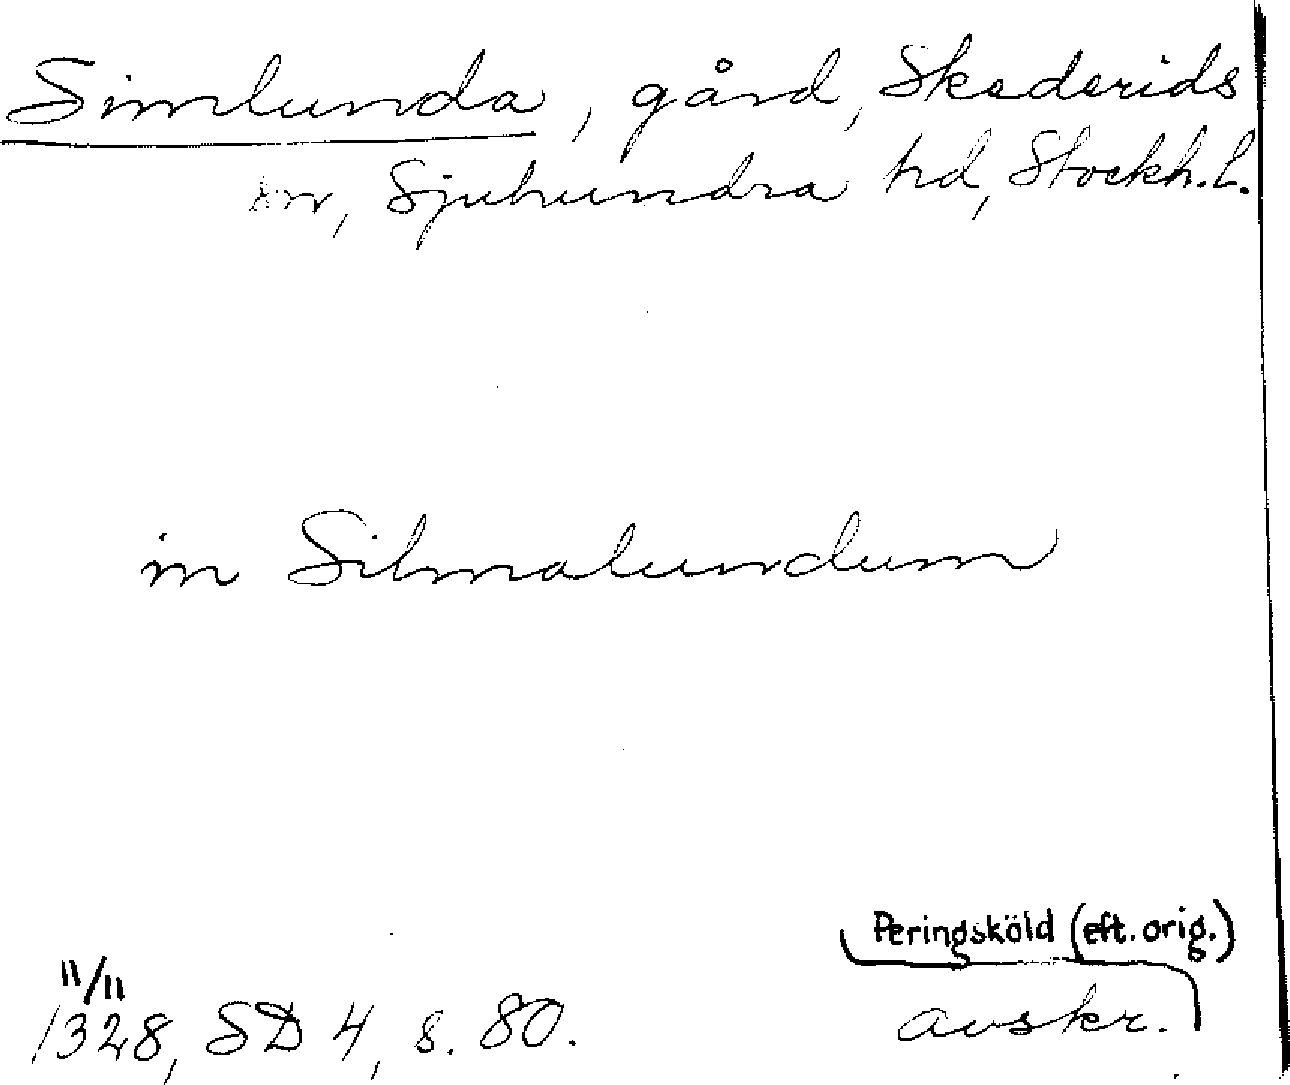 Simlunda, gård, Skederids
sn, Sjuhundra hd, Stockh.l.
in Silmalundum
Peringsköld (eft. orig.)
11/11
1328, SD 4, s. 80.
avskr.